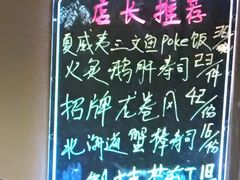 店长推荐
夏威夷三文鱼poke饭 36/份
火炙鹅肝寿司 23/件
招牌龙卷风 42/份
北海道蟹棒寿司 16/份